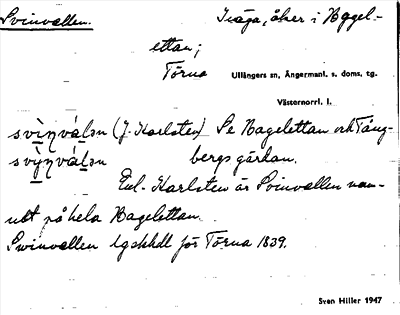 Svinvallen. Iväga, åker i Nagel-
ettan;
Törna Ullångers sn, Ångermanl. s. doms. tg.
Västernorrl. l.
svìn̥vál̥ən (J. Karlsten) Se Nagelettan och Täng-
svỳn̥vál̥ən bergsgärdan.
Enl. Karlsten är Svinvallen nam-
net på hela Nagelettan.
Swinvallen lgskhdl för Törna 1839.
Sven Hiller 1947